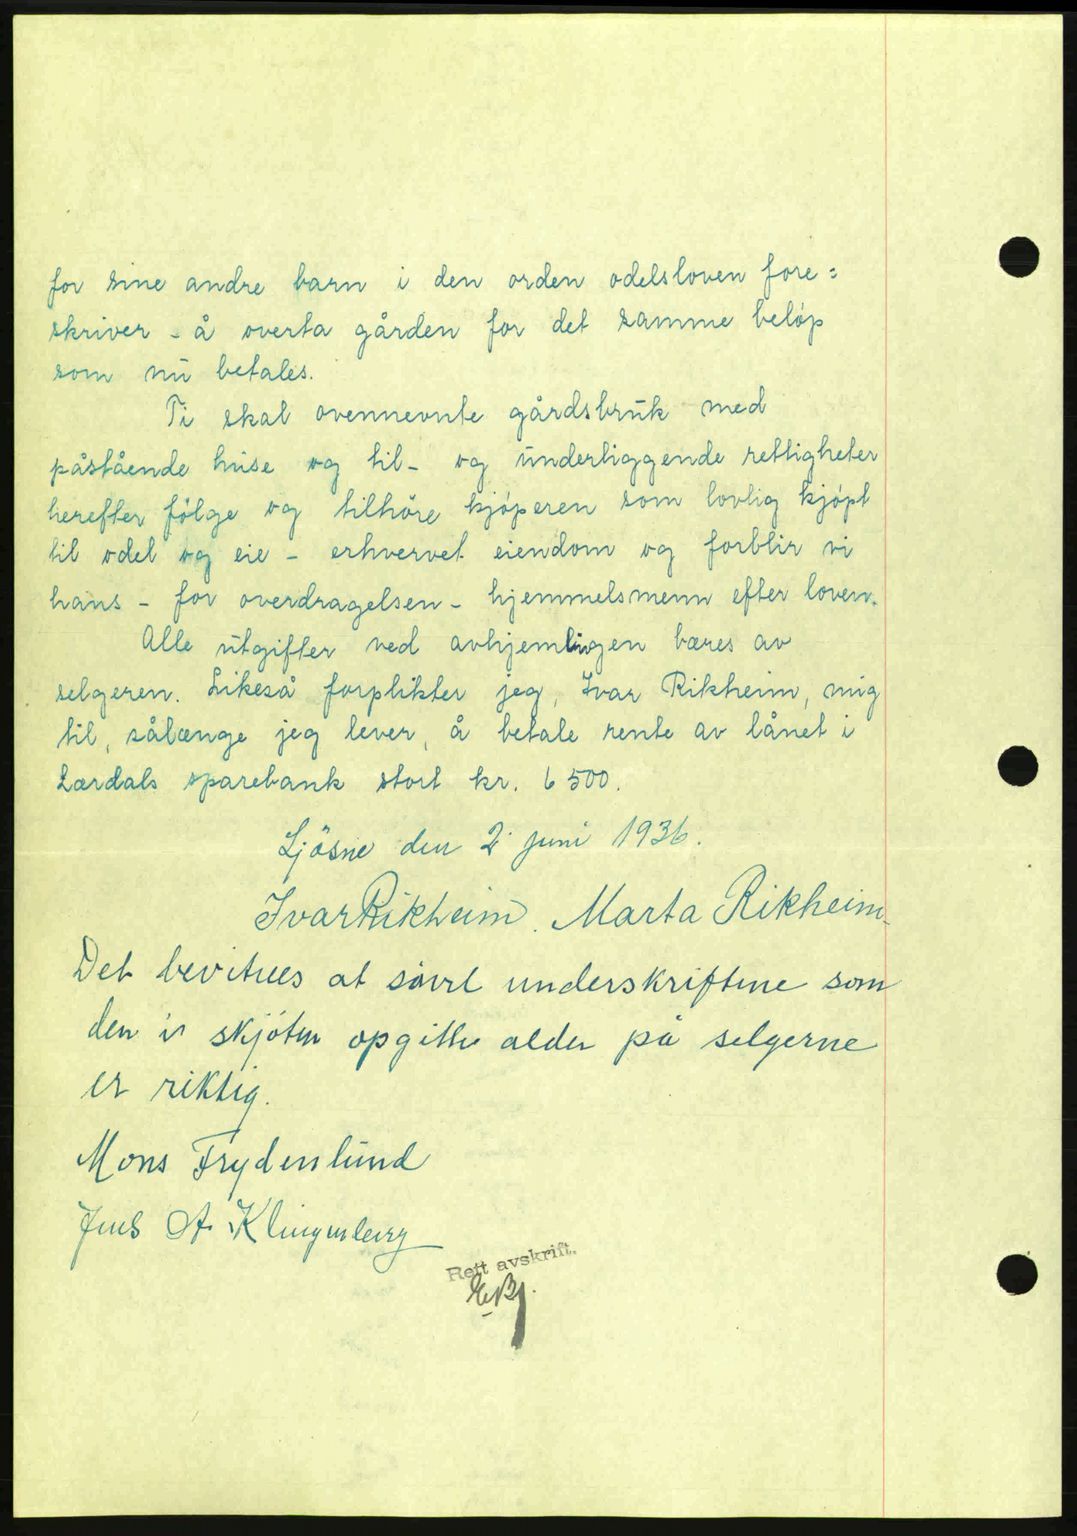 for sine andre barn i den orden odelsloven fore=
skriver - å overta gården for det samme beløp
som nu betales.
Ti skal ovennevnte gårdsbruk med
påstående huse og til- og underliggende rettigheter
herefter følge og tilhöre kjøperen som lovlig kjøpt
til odel og eie - erhvervet eiendom og forblir vi
hans - for overdragelsen - hjemmelsmenn efter loven.
Alle utgifter ved avhjemlingen bæres av
selgeren. Likeså forplikter jeg, Ivar Rikheim, mig
til, sålænge jeg lever, å betale rente av lånet i
Lærdals sparebank stort kr. 6500.
Ljösne den 2 juni 1936.
Ivar Rikheim. Marta Rikheim.
Det bevitnes at såvel underskriftene som
den i skjötet opgitte alder på selgerne
er riktig.
Mons Frydenlund
Jens A Klingenberg
Rett avskrift.